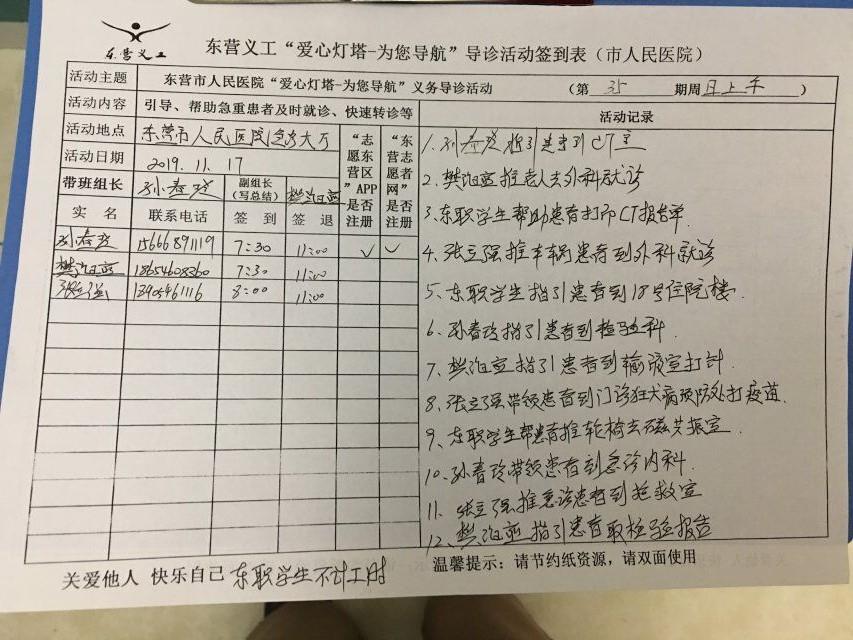 东营义工
东营义工“爱心灯塔-为您导航”导诊活动签到表（市人民医院）
活动主题 东营市人民医院“爱心灯塔-为您导航”义务导诊活动 （第 35 期周日上午 ）
活动内容 引导、帮助急重患者及时就诊、快速转诊等
活动地点 东营市人民医院急诊大厅
活动日期 2019.11.17
带班组长 孙春玲 副组长（写总结）
“志愿东营区”APP是否注册
“东营志愿者网”是否注册
实 名 联系电话 签 到 签 退
孙春玲 15666891119 7:30 11:00 ✓ ✓
18654608360 7:30 11:00
张立强 13905461116 8:00 11:00
活动记录
1、孙春玲指引患者到CT室
2、樊 推老人去外科就诊
3、东职学生帮助患者打印CT报告单
4、张立强推车辆患者到外科就诊
5、东职学生指引患者到18号住院楼.
6、孙春玲指引患者到检验科.
7、樊 指引患者到输液室打针.
8、张立强带领患者到门诊狂犬病预防处打疫苗.
9、东职学生帮患者推轮椅去磁共振室.
10、孙春玲带领患者到急诊内科.
11、张立强推急诊患者到抢救室
12、樊 指引患者取检验报告
关爱他人 快乐自己 东职学生不计工时
温馨提示：请节约纸资源，请双面使用